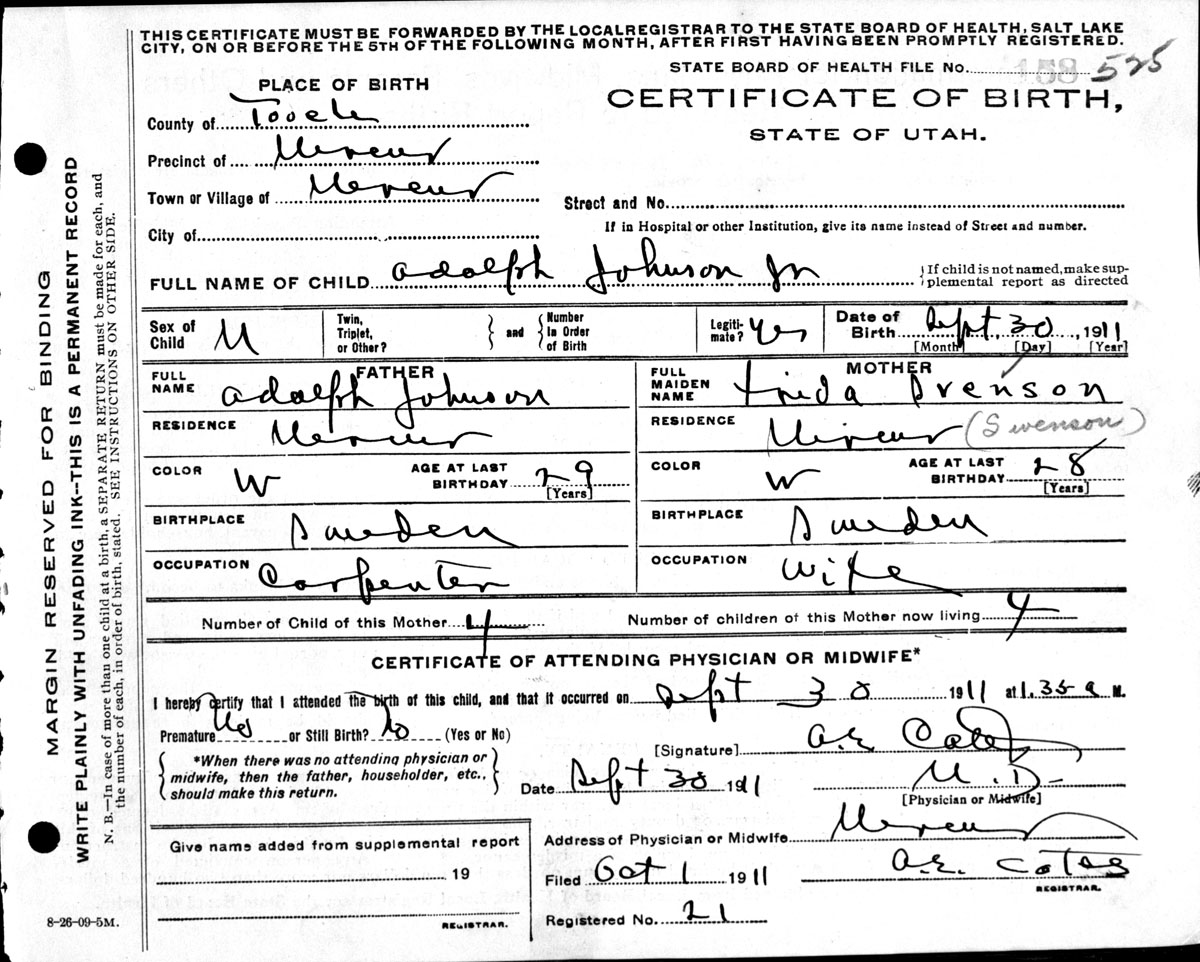 THIS CERTIFICATE MUST BE FORWARDED BY THE LOCALREGISTRAR TO THE STATE BOARD OF HEALTH, SALT LAKE
CITY, ON OR BEFORE THE 5TH OF THE FOLLOWING MONTH, AFTER FIRST HAVING BEEN PROMPTLY REGISTERED.
STATE BOARD OF HEALTH FILE No. 158 525
PLACE OF BIRTH
CERTIFICATE OF BIRTH,
STATE OF UTAH.
County of Tooele
Precinct of Mercur
Town or Village of Mercur
Street and No.
City of
If in Hospital or other Institution, give its name instead of Street and number.
FULL NAME OF CHILD Adolph Johnson Jr
If child is not named, make sup-
plemental report as directed
Sex of Child M Twin, Triplet, or Other? and Number In Order of Birth Legiti- mate? Yes Date of Birth Sept 30, 1911
[Month] [Day] [Year]
FATHER
FULL NAME Adolph Johnson
RESIDENCE Mercur
COLOR W AGE AT LAST BIRTHDAY 29
[Years]
BIRTHPLACE Sweden
OCCUPATION Carpenter
MOTHER
FULL MAIDEN NAME Frida Svenson
RESIDENCE Mercur (Swenson)
COLOR W AGE AT LAST BIRTHDAY 28
[Years]
BIRTHPLACE Sweden
OCCUPATION Wife
Number of Child of this Mother 4 Number of children of this Mother now living 4
CERTIFICATE OF ATTENDING PHYSICIAN OR MIDWIFE*
I hereby certify that I attended the birth of this child, and that it occurred on Sept 30 1911 at 1.35 a M.
Premature No or Still Birth? No (Yes or No)
*When there was no attending physician or
midwife, then the father, householder, etc.,
should make this return.
[Signature] A.E. Cates
M.D.
[Physician or Midwife]
Date Sept 30 1911
Address of Physician or Midwife Mercur
Give name added from supplemental report
19
REGISTRAR.
Filed Oct 1 1911 A.E. Cates
REGISTRAR.
Registered No. 21
8-26-09-5M.
MARGIN RESERVED FOR BINDING
WRITE PLAINLY WITH UNFADING INK—THIS IS A PERMANENT RECORD
N. B.—In case of more than one child at a birth, a SEPARATE RETURN must be made for each, and
the number of each, in order of birth, stated. SEE INSTRUCTIONS ON OTHER SIDE.